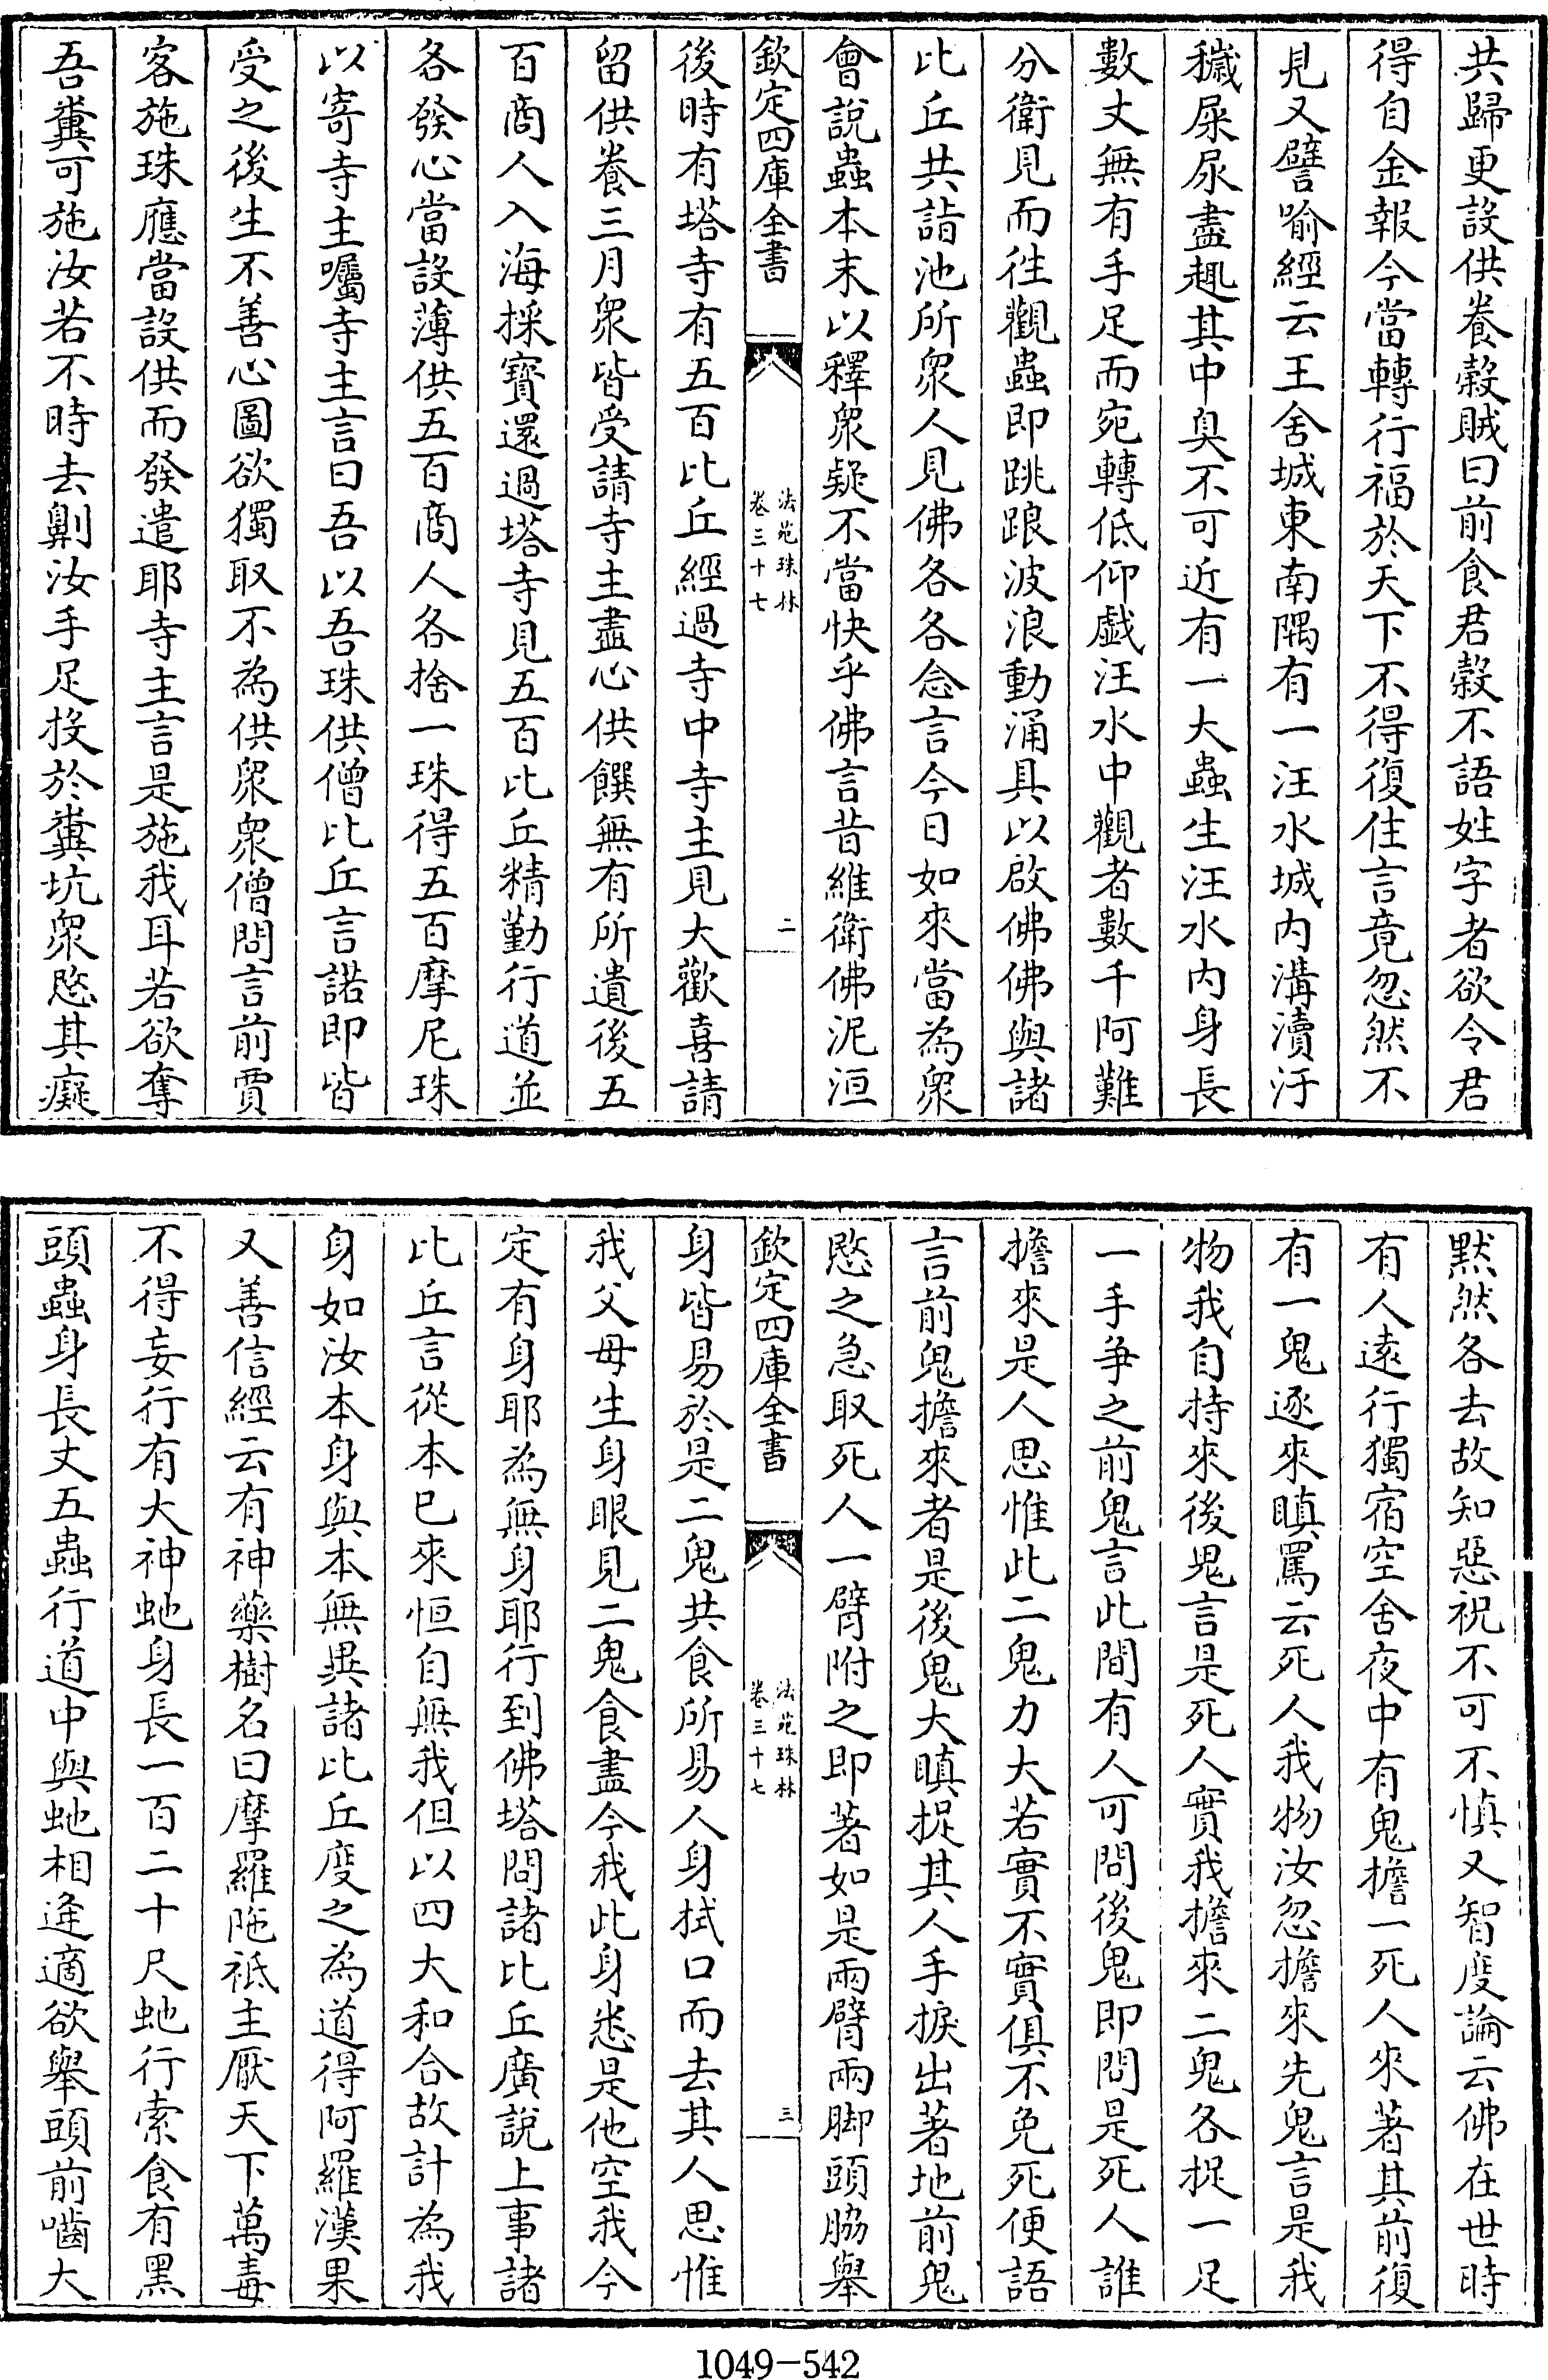 共歸更設供養穀賊曰前食君穀不語姓字者欲令君
得自金報今當轉行福於天下不得復住言竟忽然不
見又譬喻經云王舍城東南隅有一汪水城内溝瀆汙
穢屎尿盡趣其中臭不可近有一大蟲生汪水内身長
數丈無有手足而宛轉低仰戲汪水中觀者數千阿難
分衛見而徃觀蟲即跳踉波浪動涌具以啟佛佛與諸
比丘共詣池所衆人見佛各各念言今日如來當為衆
會說蟲本末以釋衆疑不當快乎佛言昔維衛佛泥洹
欽定四庫全書
法苑珠林
卷三十七
二
後時有塔寺有五百比丘經過寺中寺主見大歡喜請
留供養三月衆皆受請寺主盡心供饌無有所遺後五
百商人入海採寶還過塔寺見五百比丘精勤行道並
各發心當設薄供五百商人各捨一珠得五百摩尼珠
以寄寺主囑寺主言曰吾以吾珠供僧比丘言諾即皆
受之後生不善心圖欲獨取不為供衆衆僧問言前賈
客施珠應當設供而發遣耶寺主言是施我耳若欲奪
吾糞可施汝若不時去劓汝手足投於糞坑衆愍其癡
默然各去故知惡祝不可不慎又智度論云佛在世時
有人遠行獨宿空舍夜中有鬼擔一死人來著其前復
有一鬼逐來瞋罵云死人我物汝忽擔來先鬼言是我
物我自持來後鬼言是死人實我擔來二鬼各捉一足
一手爭之前鬼言此間有人可問後鬼即問是死人誰
擔來是人思惟此二鬼力大若實不實俱不免死便語
言前鬼擔來者是後鬼大瞋捉其人手捩出著地前鬼
愍之急取死人一臂附之即著如是兩臂兩脚頭脇舉
欽定四庫全書
法苑珠林
卷三十七
三
身皆易於是二鬼共食所易人身拭口而去其人思惟
我父母生身眼見二鬼食盡今我此身悉是他空我今
定有身耶為無身耶行到佛塔問諸比丘廣說上事諸
比丘言從本已來恒自無我但以四大和合故計為我
身如汝本身與本無異諸比丘度之為道得阿羅漢果
又善信經云有神藥樹名曰摩羅陁祇主厭天下萬毒
不得妄行有大神虵身長一百二十尺虵行索食有黑
頭蟲身長丈五蟲行道中與虵相逢適欲舉頭前嚙大
1049-542